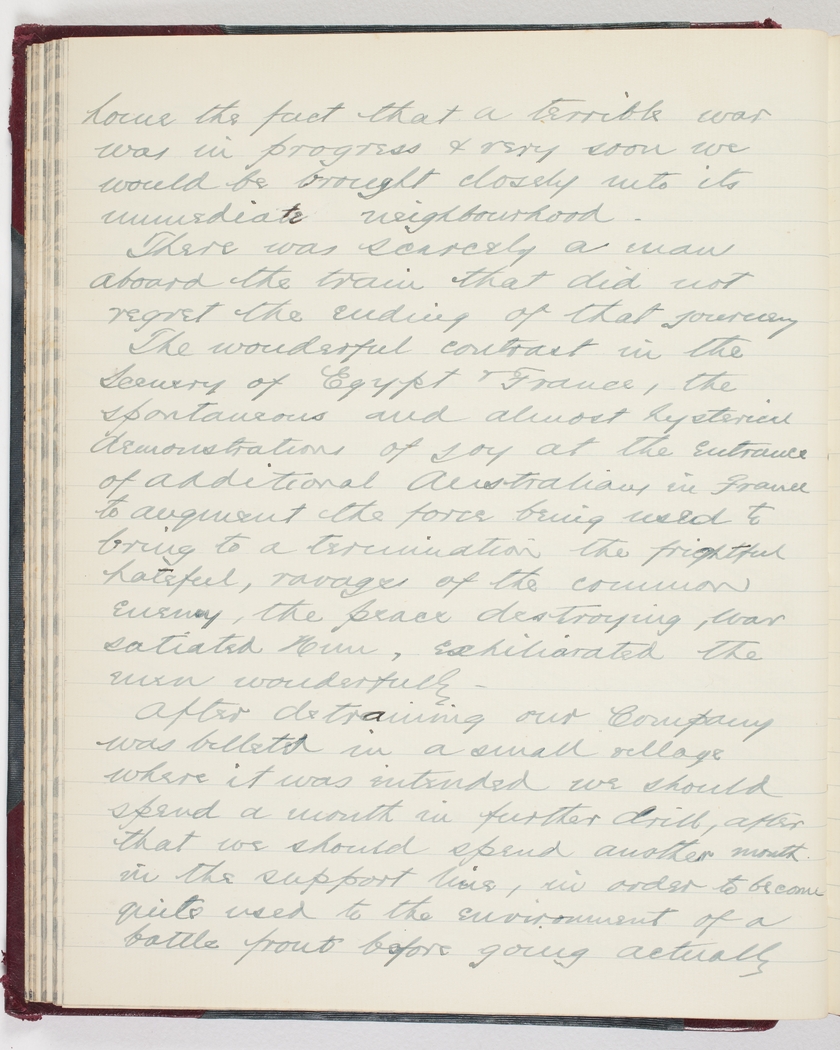 home the fact that a terrible war
was in progress & very soon we
would be brought closely into its
immediate neighbourhood.
There was scarcely a man
aboard the train that did not
regret the ending of that journey
The wonderful contrast in the
Scenery of Egypt & France, the
spontaneous and almost hysterical
demonstrations of joy at the entrance
of additional Australians in France
to augment the force being used to
bring to a termination the frightful
hateful, ravages of the common
enemy, the peace destroying, war
satiated Hun, exhiliarated the
men wonderfully -
After detraining our Company
was billetd in a small village
where it was intended we should
spend a month in further drill, after
that we should spend another month
in the support line, in order to become
quite used to the environment of a
battle front before going actually